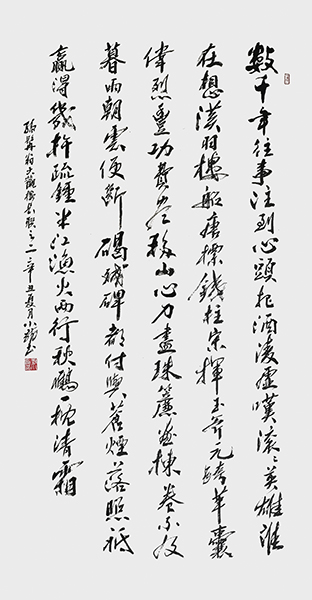 數千年往事注到心頭把酒凌虛嘆滾〻英雄誰
在想漢習樓船唐標鐵柱宋揮玉斧元跨革囊
偉烈豐功費盡移山心力盡珠簾畫棟卷不及
暮雨朝雲便斷碣殘碑都付與蒼煙落照祗
贏得幾杵疏鐘半江漁火兩行秋鴈一枕清霜
孫髯翁大觀樓長聯之二辛丑夏月小書